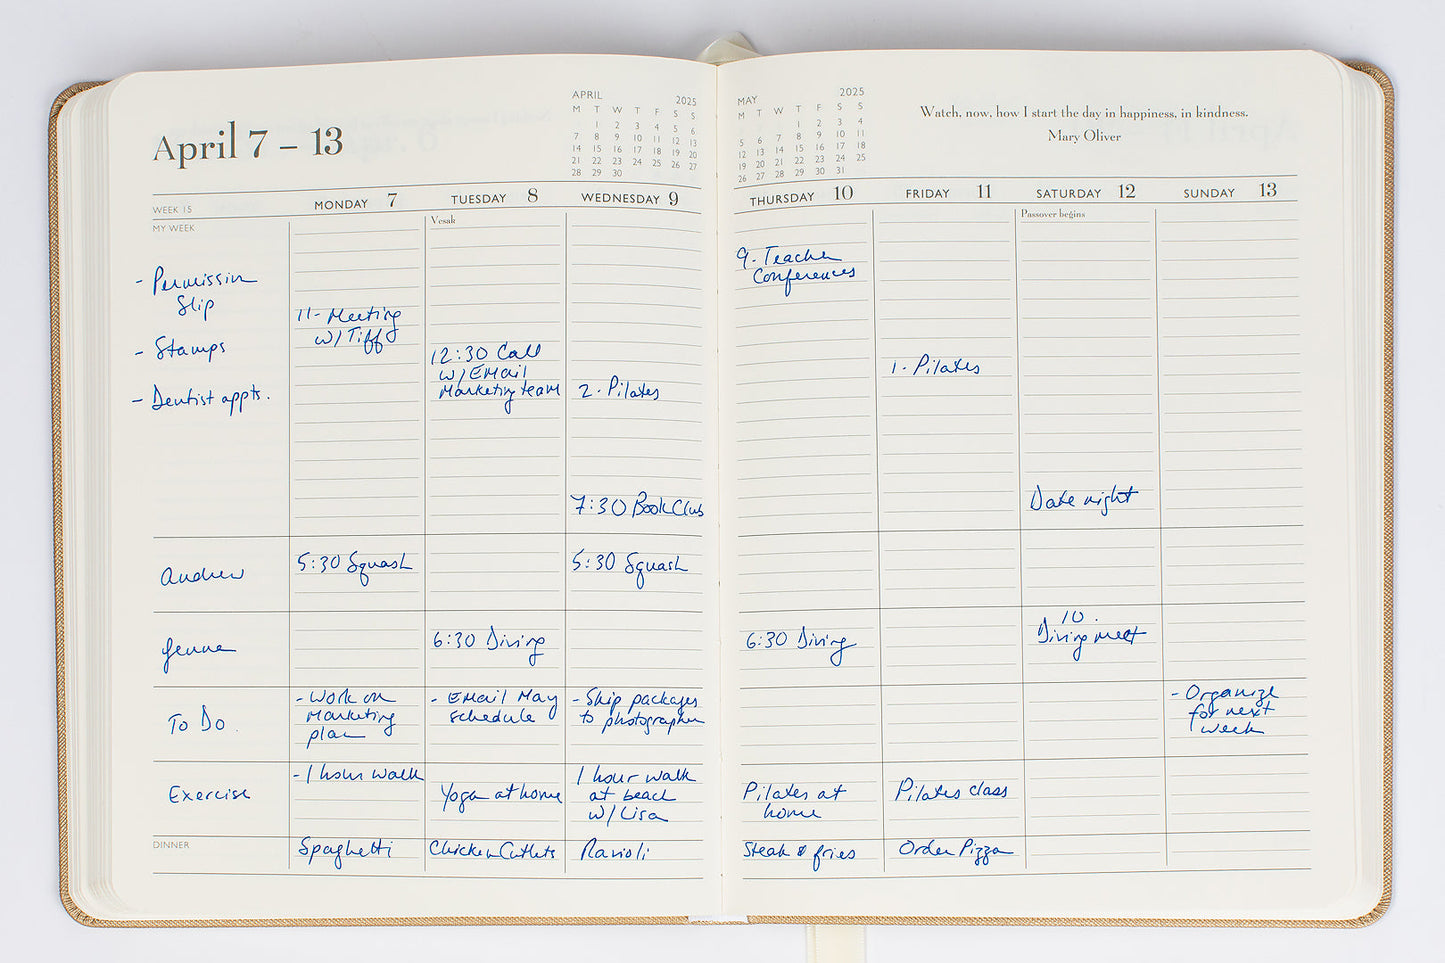 April 7 – 13
APRIL 2025
M T W T F S S
1 2 3 4 5 6
7 8 9 10 11 12 13
14 15 16 17 18 19 20
21 22 23 24 25 26 27
28 29 30
WEEK 15
MONDAY 7
TUESDAY 8
WEDNESDAY 9
MY WEEK
Vesak
- Permission
Slip
- Stamps
- Dentist appts.
11- Meeting
w/ Tiff
12:30 Call
w/ EMail
Marketing team
2 - Pilates
7:30 Book Club
Andrew
5:30 Squash
5:30 Squash
Jenna
6:30 Diving
To Do
- Work on
Marketing
plan
- EMail May
schedule
- Ship packages
to photographer
Exercise
- 1 hour walk
Yoga at home
1 hour walk
at beach
w/ Lisa
DINNER
Spaghetti
Chicken Cutlets
Ravioli
MAY 2025
M T W T F S S
1 2 3 4
5 6 7 8 9 10 11
12 13 14 15 16 17 18
19 20 21 22 23 24 25
26 27 28 29 30 31
Watch, now, how I start the day in happiness, in kindness.
Mary Oliver
THURSDAY 10
FRIDAY 11
SATURDAY 12
SUNDAY 13
Passover begins
9 - Teacher
Conferences
1 - Pilates
Date night
6:30 Diving
10 -
Diving meet
- Organize
for next
week
Pilates at
home
Pilates class
Steak & fries
Order Pizza